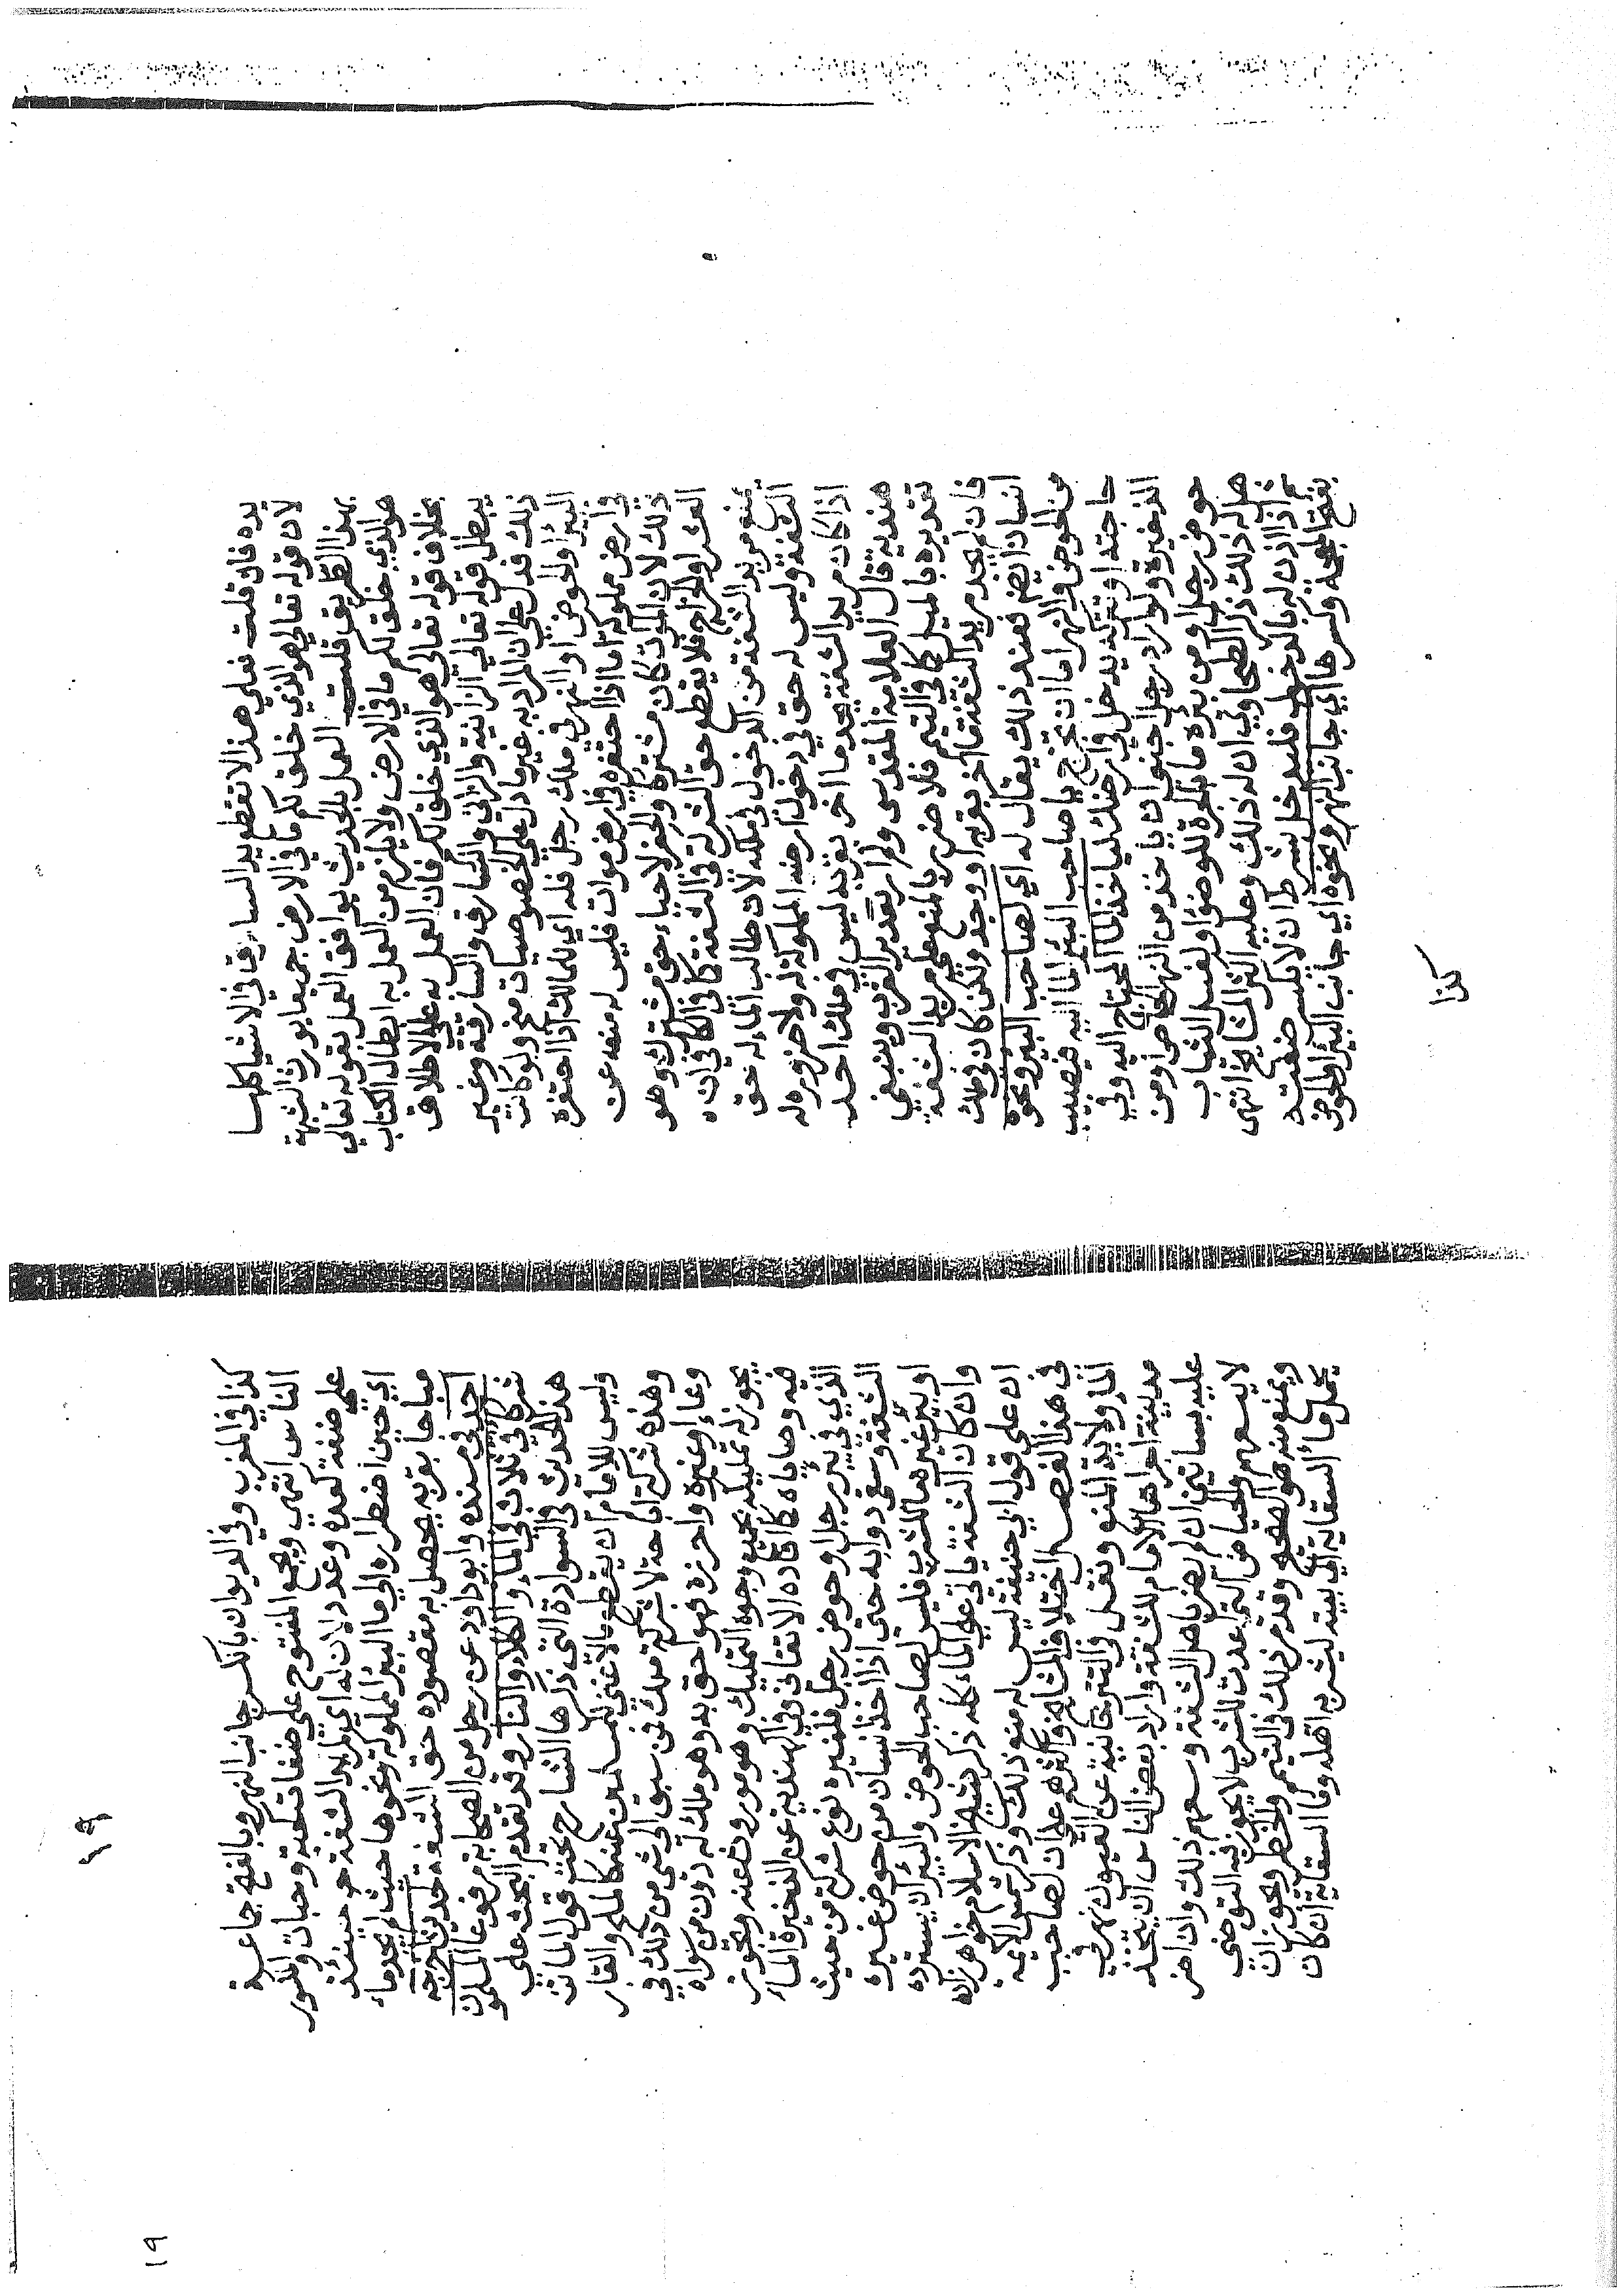 يده فان قلت فعلي هذا لا تقطع يد السارق في الاشيا كلها
لان قوله تعالي هو الذي خلق لكم ما في الارض جميعا يورث الشبهة
بهذا الطريق قلت العمل بالحديث يوافق العمل بقوله تعالي
هو الذي خلق لكم ما في الارض ولا يلزم من العمل به ابطال الكتاب
بخلاف قوله تعالي هو الذي خلق لكم فان العمل به علي الاطلاق
يبطل قوله تعالي الزانية والزاني والسارق والسارقة وغير
ذلك فدل علي ان المراد به غير ما دل علي الخصوصيات منح ولو كانت
البئر او الحوض او النهر في ملك رجل فله اي للمالك اذا احتفره
في ارض مملوكة اما اذا احتفره في ارض موات فليس له منعه عن
ذلك لان الموات كان مشتركا والحفر لاحياء حق مشترك وهو
العشر او الخراج فلا يقطع حق الشركة في الشفة كما في الكافي ان
يمنع مريد الشفة من الدخول في ملكه لان طالب الماء له حق
الشفة وليس له حق في دخول ارضه المملوكة له ولا ضرورة له
اذا كان مريد الشفة يجد ما اخر بقربه ليس في ملك احد
هندية قال العلامة المقدسي ولم ار تقدير القرب وينبغي
تقديره بالميل كما في التيمم فلا ضرر بالمنع علي مريد الشفة
فان لم يجد مريد الشفة ما اخر بقربه او وجد ولكن كان في ملك
انسان ايضا فعند ذلك يقال له اي لصاحب البير ونحوه
من الحوض والنهر اما ان تخرج يا صاحب البئر الما اليه فيصيب
حاجته او تتركه يدخل في ارضك لياخذ الما المحتاج اليه وفي
الذخيرة ولو اراد رجل اجنبي ان ياخذ من النهر الخاص او من
حوض رجل او من بئره ما بالجرة للوضوء او لغسل الثياب
هل له ذلك ذكر الطحاوي ان له ذلك وعليه اكثر المشايخ انتهي
ثم اذا اذن له بالدخول فليدخل بشرط ان لا يكسر ضفيته
بفتح المعجمة وكسرها اي جانب النهر ونحوه اي جانب البئر او الحوض
كذا
كذا في المغرب وفي الديوان بالكسر جانب النهر وبالفتح جماعة
الناس انتهي ويجمع المفتوح علي ضفات كحبة وحبات والمكسور
علي ضفف كعدة وعدد لان له اي لمريد الشفة حينئذ
اي حين اضطراره الي ما البير المملوكة ونحوها حيث لم يجد ماء
مباحا بقربه يحصل به مقصوده حق الشفة لحديث اخرجه
احمد في مسنده وابو داود عن رجل من الصحابة مرفوعا المسلمون
شركا في ثلاث في الماء والكلاء والنار وقد تقدم البحث علي
هذا الحديث في السوادة التي ذكرها الشارح تحت قول الماتن
وليس للامام ان يقطع ما لا غني للمسلمين عنه كالملح والقار
وهذه شركة اباحة لا شركة ملك فمن سبق الي شي من ذلك في
وعاء او غيره واحرزه فهو احق به وهو ملك له دون من سواه
يجوز له تمليكه بجميع وجوه التمليك وهو موروث عنه وتجوز
فيه وصاياه كما افاده الاتقاني وفي الهندية عن الذخيرة الماء
الذي في بئر رجل او حوض رجل فلغيره نوع شركة من حيث
الشفة وسقي دوابه حتي اذا اخذ انسان من حوض غيره
او بئر غيره ماء للشرب فليس لصاحب الحوض والبئر ان يسترده
وان كان الشفة ياتي علي الماء كله ذكر شيخ الاسلام خواهرزاده
ان علي قول ابي حنيفة ليس له منع ذلك وذكر شمس الايمة
في هذا الفصل اختلاف المشايخ واكثرهم علي ان لصاحب
الماء ولاية المنع ونقل في التترخانية عن العيون نهر في
مدينة اجراها الامام للشفة واراد بعض الناس ان يتخذ
عليه بساتين ان لم يضر باهل الشفة وسعهم ذلك وان اضر
لا يسعهم والحياض التي اعدت للشرب لا يجوز فيه التوضي
ويمنع منه هو الصحيح وقد مر ذلك في التيمم والحظر ويجوز ان
يحمل ماء السقاية الي بيته ليشربه اهله وما السقاية ان كان
١٩
١٩